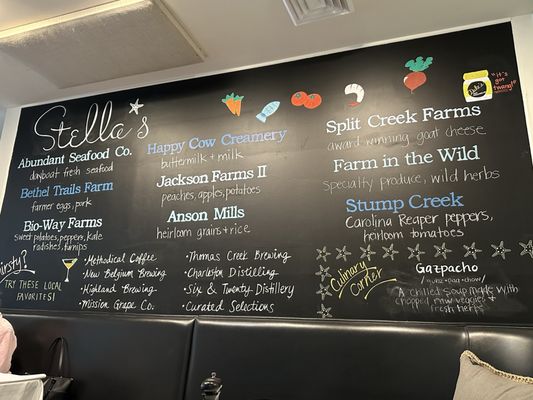 Stella's
Abundant Seafood Co.
dayboat fresh seafood
Bethel Trails Farm
farmer eggs, pork
Bio-Way Farms
sweet potatoes, peppers, kale
radishes, turnips
Happy Cow Creamery
buttermilk + milk
Jackson Farms II
peaches, apples, potatoes
Anson Mills
heirloom grains + rice
Split Creek Farms
award winning goat cheese
Farm in the Wild
Specialty produce, wild herbs
Stump Creek
Carolina Reaper peppers,
heirloom tomatoes
"it's got
twang!"
TRY THESE LOCAL
FAVORITES!
• Methodical Coffee
• New Belgium Brewing
• Highland Brewing
• Mission Grape Co.
• Thomas Creek Brewing
• Charleston Distilling
• Six & Twenty Distillery
• Curated Selections
Culinary
Corner
Gazpacho
A chilled soup made with
chopped raw veggies &
fresh herbs